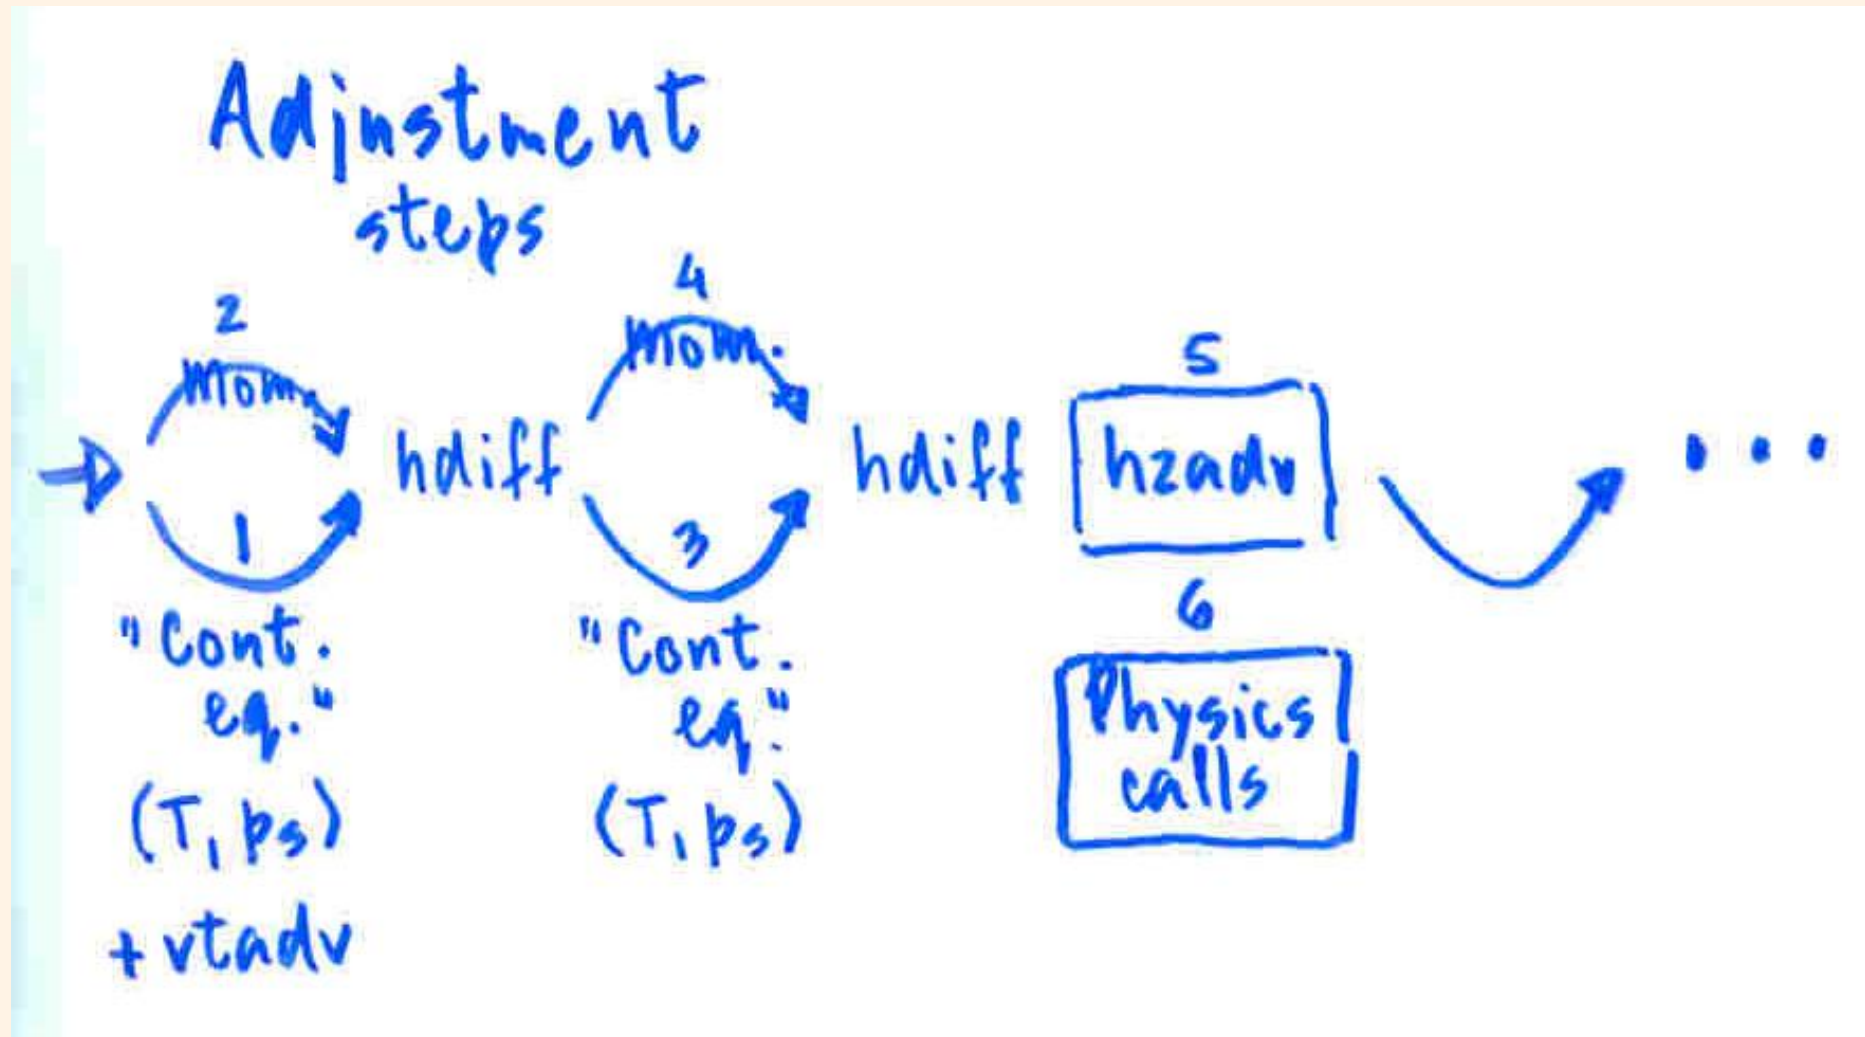 Adjustment
steps
2
mom.
1
"Cont.
eq."
(T, ps)
+ vtadv
hdiff
4
mom.
3
"Cont.
eq."
(T, ps)
hdiff
5
hzadv
6
Physics
calls
...